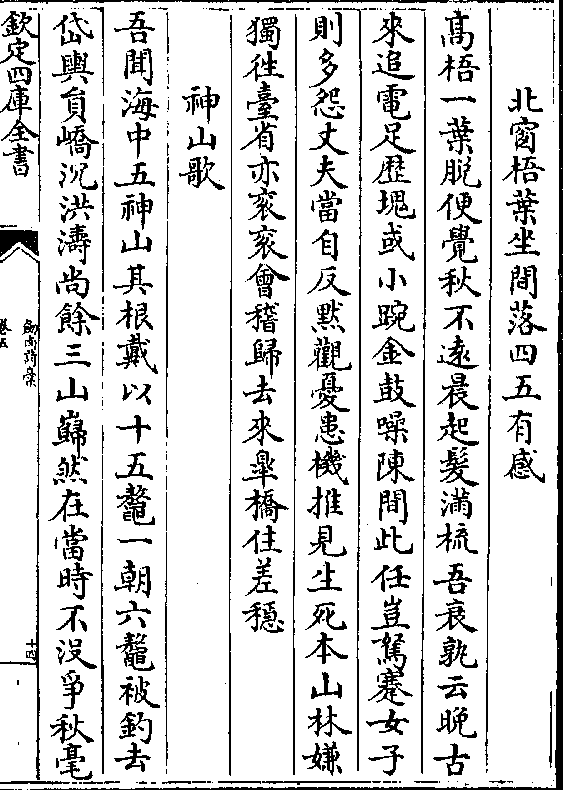 北窗梧葉坐間落四五有感
髙梧一葉脱便覺秋不逺晨起髪滿梳吾衰孰云晚古
來追電足歴塊或小踠金鼓噪陳間此任豈駑蹇女子
則多怨丈夫當自反黙觀憂患機推見生死本山林嫌
獨徃臺省亦衮衮會稽歸去來臯橋住差穏
神山歌
吾聞海中五神山其根戴以十五鼇一朝六鼇被釣去
岱輿貟嶠沉洪濤尚餘三山巋然在當時不没爭秋毫
欽定四庫全書
劍南詩稾
卷五
十四